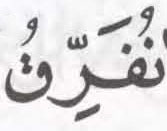 نُفَرِّقُ